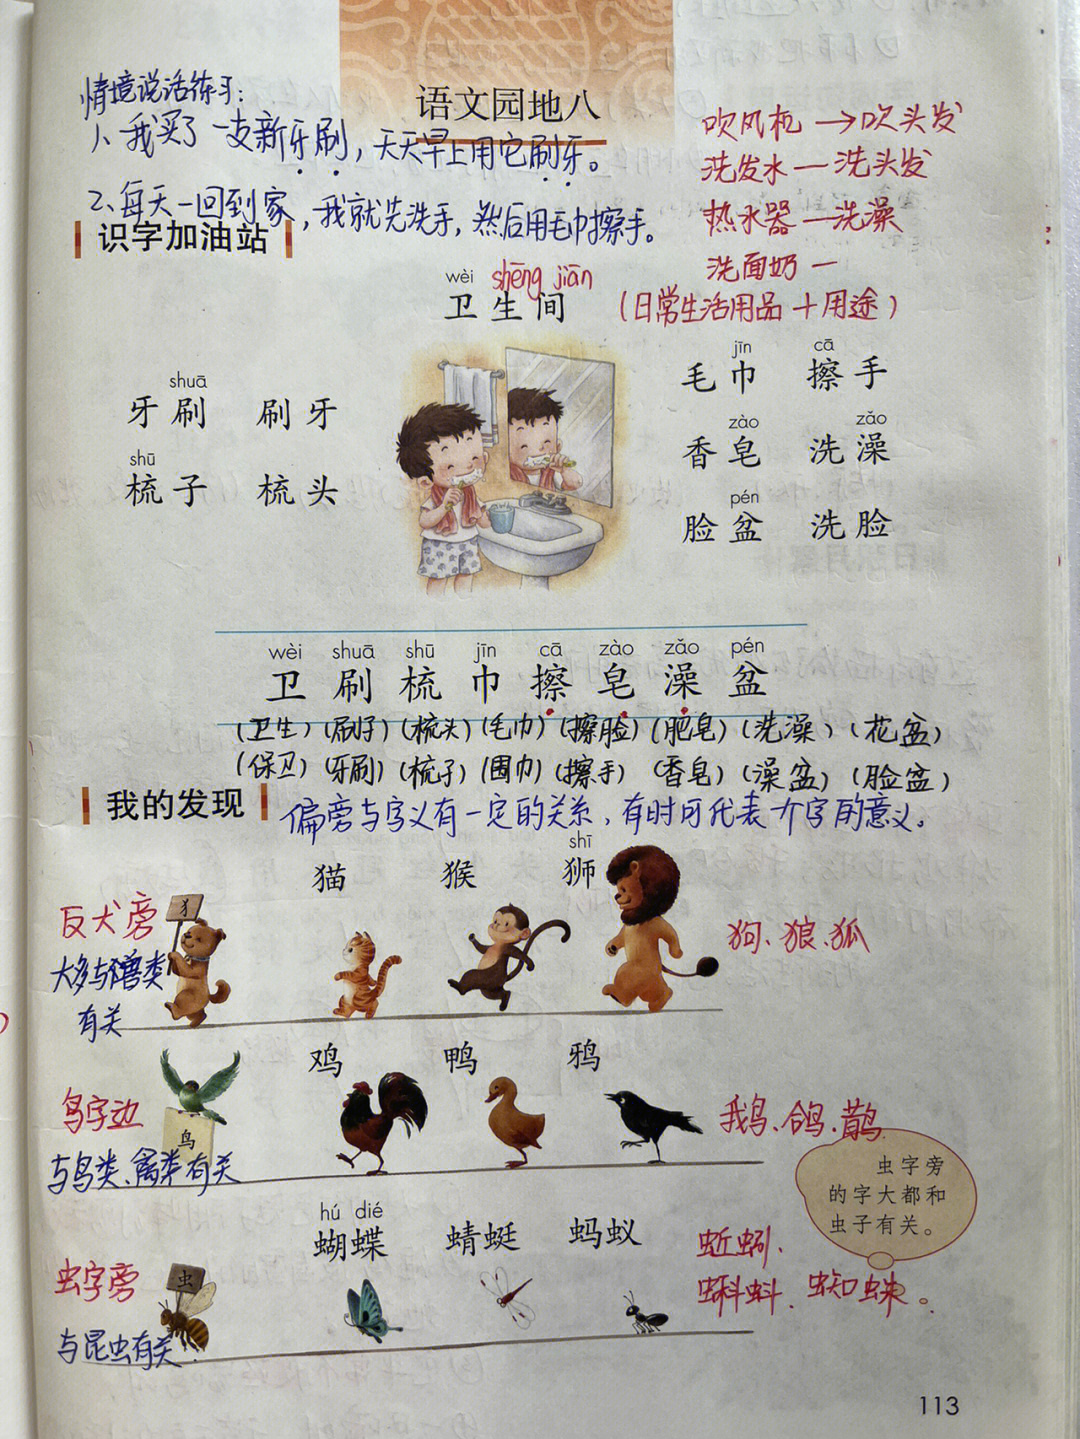 语文园地八
情境说话练习:
1、我买了一支新牙刷，天天早上用它刷牙。
2、每天一回到家，我就先洗手，然后用毛巾擦手。
吹风机→吹头发
洗发水—洗头发
热水器—洗澡
洗面奶—
(日常生活用品+用途)
识字加油站
wèi shēng jiān
卫生间
shuā
牙刷 刷牙
shū
梳子 梳头
jīn cā
毛巾 擦手
zào zǎo
香皂 洗澡
pén
脸盆 洗脸
wèi shuā shū jīn cā zào zǎo pén
卫 刷 梳 巾 擦 皂 澡 盆
(卫生)(刷好)(梳头)(毛巾)(擦脸)(肥皂)(洗澡)(花盆)
(保卫)(牙刷)(梳子)(围巾)(擦手)(香皂)(澡盆)(脸盆)
我的发现
偏旁与字义有一定的关系，有时可代表个字的意义。
shī
猫 猴 狮
反犬旁
犭
大多与兽类
有关
狗、狼、狐
鸡 鸭 鸦
鸟字边
鸟
与鸟类、禽类有关
鹅、鸽、鹊
虫字旁
的字大都和
虫子有关。
hú dié
蝴蝶 蜻蜓 蚂蚁
虫字旁
虫
与昆虫有关
蚯蚓、
蝌蚪、蜘蛛。
113